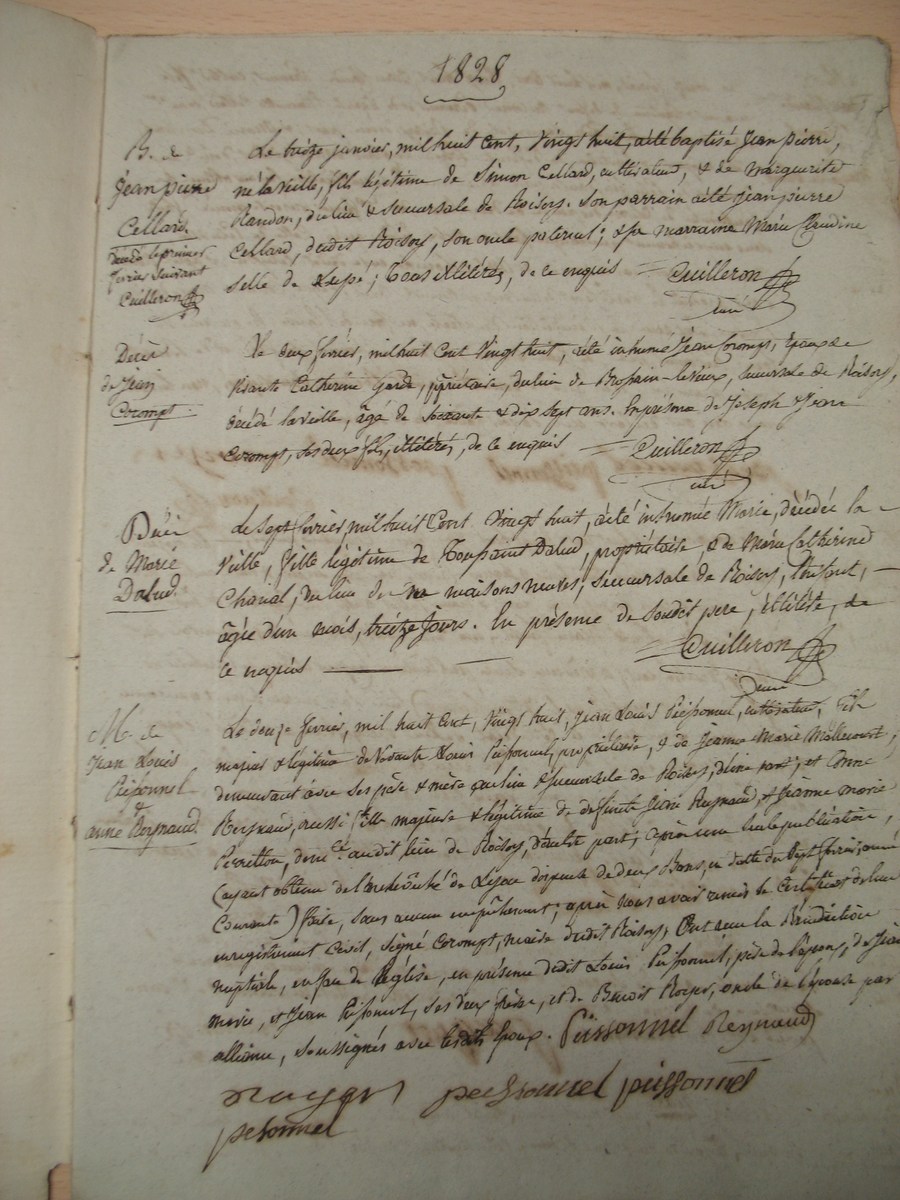 1828
B. de
Jean pierre
Cellard.
décédé le premier
fevrier suivant
Cuilleron
Le treize janvier, mil huit cent, vingt huit, a été baptisé Jean pierre,
né la veille, fils légitime de Simon Cellard, cultivateur, & de marguerite
Randon, du lieu & succursale de Roisey. Son parrain a été jean pierre
Cellard, dudit Roisey, son oncle paternel; & sa marraine Marie Claudine
selle de Lupé; tous illitérés, de ce enquis = Cuilleron
curé
Décès
de Jean
Corompt.
Le deux fevrier, mil huit Cent Vingt huit, a été inhumé Jean Corompt, Epoux de
vivante Catherine Garde, propriétaire, du lieu de Brossain-levieux, succursale de Roisey,
décédé la veille, âgé de soixante & dix sept ans. En présence de Joseph & Jean
Corompt, ses deux fils, illitérés, de ce enquis = Cuilleron
curé
Décès
de Marie
Dalud.
Le sept fevrier, mil huit Cent Vingt huit, a été inhumée Marie, décédée la
Veille, fille légitime de Toussaint Dalud, propriétaire, & de Marie Catherine
Charial, du lieu de maisons neuves, succursale de Roisey,
âgée d'un mois, treize jours. En présence de sondit pere, illitéré, de
ce enquis = Cuilleron
curé
M. de
Jean Louis
Peissonnel
&
anne Reynaud.
Le douze fevrier, mil huit Cent, Vingt huit, Jean Louis Peissonnel, cultivateur, fils
majeur & légitime de vivants Louis Peissonnel, propriétaire, & de Jeanne Marie
demeurant avec ses père & mère au lieu & succursale de Roisey, d'une part; et Anne
Reynaud, aussi fille majeure & légitime de défunts Jean Reynaud, & Jeanne marie
audit lieu de Roisey, d'autre part; après une seule publication,
(ayant obtenu de l'archevêché de Lyon dispense de deux Bans, en datte du sept fevrier, année
Courante) faite, sans aucun empêchement; après nous avoir remis le Certificat de leur
enregistrement Civil, signé Corompt, maire dudit Roisey, Ont reçu la Bénédiction
nuptiale, en face de l'église, en présence dudit Louis Peissonnel, père de l'époux, de Jean
marie, et Jean Peissonnel, ses deux frères, et de Benoit Royer, oncle de l'épouse par
alliance, soussignés avec lesdits Epoux. Peissonnel Reynaud
Royer peissonnel peissonnel
pesonnel